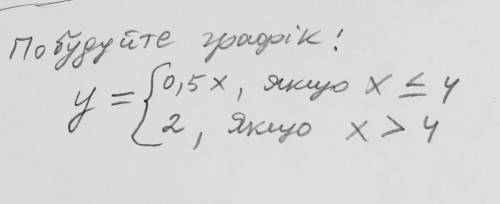 Побудуйте графік!
y = { 0,5x, якщо x ≤ 4
2, якщо x > 4